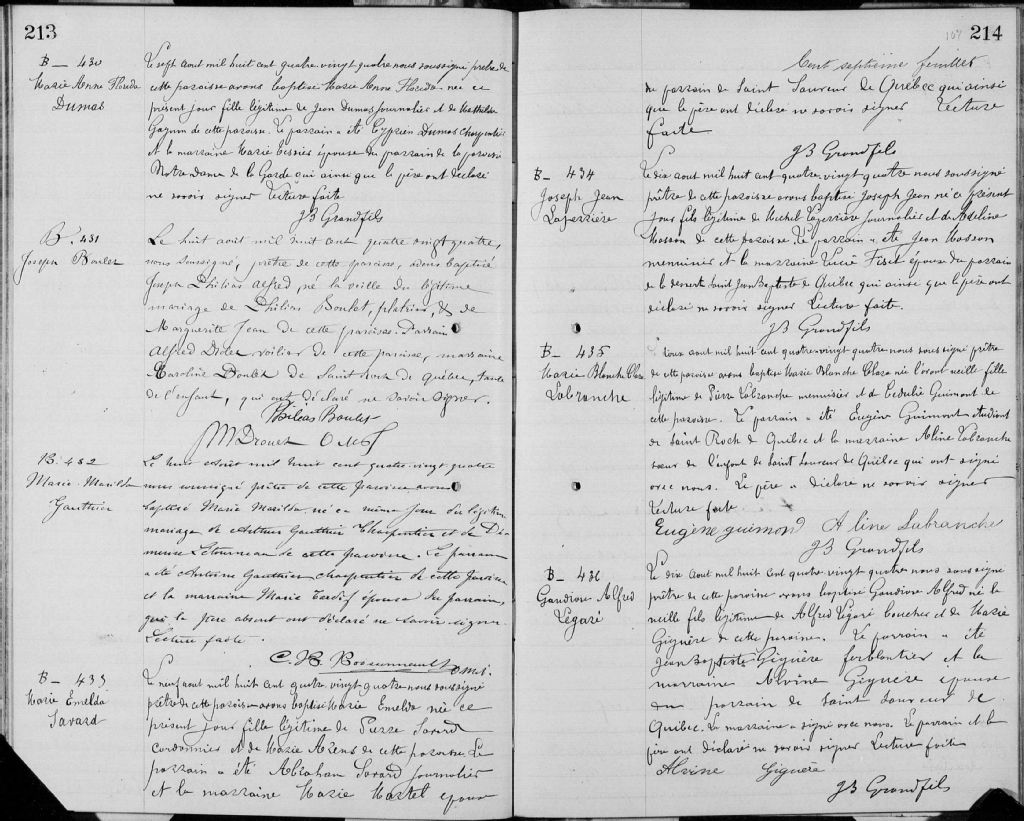 213
B — 430
Marie Anne Florida
Dumas
Le sept aout mil huit cent quatre-vingt quatre nous soussigné pretre de
cette paroisse avons baptisé Marie Anne Florida née ce
présent jour fille légitime de Jean Dumas Journalier et de Mathilda
Gagnon de cette paroisse. Le parrain a été Cyprien Dumas Charpentier
et la marraine Marie Tessier épouse du parrain de la paroisse
Notre dame de la Garde qui ainsi que le père ont déclaré
ne savoir signer Lecture faite
JB Grandfils
B. 431
Joseph Boulet
Le huit août mil huit cent quatre vingt quatre,
nous soussigné, prêtre de cette paroisse, avons baptisé
Joseph Philias Alfred né la veille du légitime
mariage de Philias Boulet, plâtrier, & de
Marguerite Jean de cette paroisse. Parrain
Alfred Didier voilier de cette paroisse, marraine
Caroline Boulet de Saint Roch de Québec, tante
de l'enfant, qui ont déclaré ne savoir signer.
Philéas Boulet
B. 432
Marie-Marilda
Gauthier
Le huit Août mil huit cent quatre-vingt quatre
nous soussigné prêtre de cette paroisse avons
baptisé Marie Marilda, né ce même jour du légitime
mariage de Arthur Gauthier Charpentier et de Dé-
merise Létourneau de cette paroisse. Le parrain
a été Antoine Gauthier charpentier de cette paroisse
et la marraine Marie Tardif épouse du parrain,
qui, le père absent ont déclaré ne savoir signer.
Lecture faite.
B — 433
Marie Emelda
Savard
Le neuf aout mil huit cent quatre vingt-quatre nous soussigné
prêtre de cette paroisse avons baptisé Marie Emelda née ce
présent jour fille légitime de Pierre Savard
Cordonnier et de Marie Arens de cette paroisse Le
parrain a été Abraham Savard Journalier
et la marraine Marie Martel épouse
107 214
Cent septième feuillet
du parrain de Saint Sauveur de Québec qui ainsi
que le père ont déclaré ne savoir signer Lecture
faite
JB Grandfils
B — 434
Joseph Jean
Laferrière
Le dix aout mil huit cent quatre-vingt quatre nous soussigné
prêtre de cette paroisse avons baptisé Joseph Jean né ce présent
jour fils légitime de Michel Laferrière Journalier et de Adelina
Masson de cette paroisse. Le parrain a été Jean Masson
menuisier et la marraine Lucie Fiset épouse du parrain
de la desserte Saint Jean Baptiste de Québec qui ainsi que le père ont
déclaré ne savoir signer Lecture faite.
JB Grandfils
B — 435
Marie Blanche Clara
Labranche
aout mil huit cent quatre-vingt quatre nous soussigné prêtre
de cette paroisse avons baptisé Marie Blanche Clara née l'avant veille fille
légitime de Pierre Labranche menuisier et de Cédulie Guimont de
cette paroisse. Le parrain a été Eugène Guimont étudiant
de Saint Roch de Québec et la marraine Aline Labranche
soeur de l'enfant de Saint Sauveur de Québec qui ont signé
avec nous. Le père a déclaré ne savoir signer
Lecture faite
Eugène guimond Aline Labranche
JB Grandfils
B — 436
Gaudiose Alfred
Légaré
Le dix aout mil huit cent quatre vingt quatre nous soussigné
prêtre de cette paroisse avons baptisé Gaudiose Alfred né la
veille fils légitime de Alfred Légaré boucher et de Marie
Giguère de cette paroisse. Le parrain a été
Jean Baptiste Giguière ferblantier et la
marraine Alvine Giguère épouse
du parrain de Saint Sauveur de
Québec. La marraine a signé avec nous. Le parrain et le
père ont déclaré ne savoir signer Lecture faite
Alvine Giguère
JB Grandfils